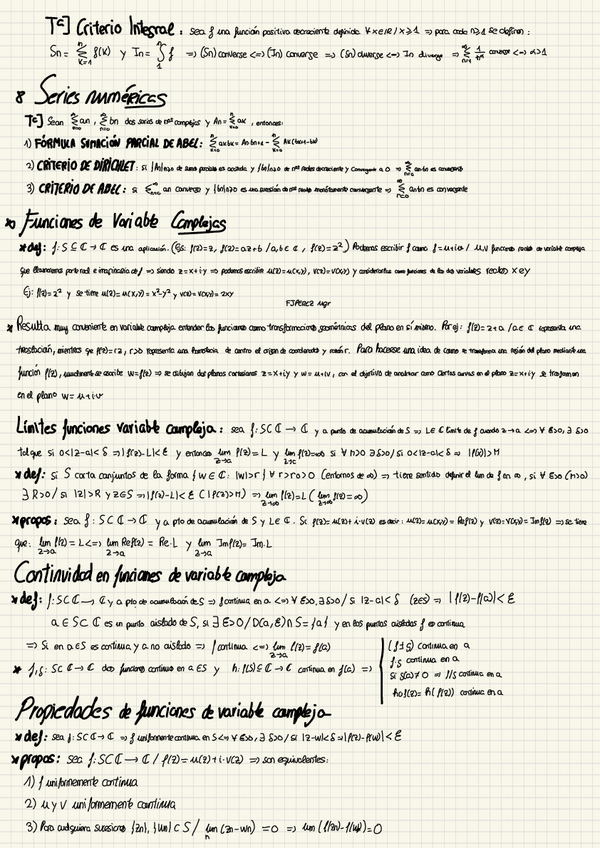 Tª] Criterio Integral: sea f una función positiva decreciente definida ∀x∈ℝ/x≥1 ⇒ para cada n≥1 se definen:
Sn = Σ_{k=1}^{n} f(k) y In = ∫_1^n f ⇒ (Sn) converse <=> (In) converse ⇒ (Sn) diverse <=> In diverge ⇒ Σ_{n=1}^{∞} 1/n^α converge <=> α>1
8 Series numéricas
Tª] Sean Σ_{n=0}^{∞} an, Σ_{n=0}^{∞} bn dos series de nºs complejos y An = Σ_{k=0}^{n} ak, entonces:
1) FÓRMULA SUMACIÓN PARCIAL DE ABEL:
2) CRITERIO DE DIRICHLET: si {An}n≥0 de sumas parciales es acotada y {bn}n≥0 de nºs reales decreciente y convergente a 0 ⇒ Σ_{n=0}^{∞} anbn es convergente
3) CRITERIO DE ABEL: si Σ_{n=0}^{∞} an converge y {bn}n≥0 es una sucesión de nºs reales monótonamente convergente ⇒ Σ_{n=0}^{∞} anbn es convergente
Funciones de Variable Complejas
*def: f: S ⊆ ℂ → ℂ es una aplicación. (Ej: f(z)=z, f(z)=az+b / a,b∈ℂ, f(z)=z²) Podemos escribir f como f=u+iv / u,v funciones reales de variable compleja
que llamaremos parte real e imaginaria de f ⇒ siendo z=x+iy ⇒ podemos escribir u(z)=u(x,y), v(z)=v(x,y) y considerarlas como funciones de las dos variables reales x e y
Ej: f(z)=z² y se tiene u(z)=u(x,y)=x²-y² y v(z)=v(x,y)=2xy
FJPEREZ ugr
* Resulta muy conveniente en variable compleja entender las funciones como transformaciones geométricas del plano en sí mismo. Por ej: f(z)=z+a / a∈ℂ representa una
traslación, mientras que f(z)=rz, r>0 representa una homotecia de centro el origen de coordenadas y razón r. Para hacerse una idea de como se transforma una región del plano mediante una
función f(z), usualmente se escribe w=f(z) ⇒ se dibujan dos planos cartesianos z=x+iy y w=u+iv, con el objetivo de analizar como ciertas curvas en el plano z=x+iy se trasforman
en el plano w=u+iv
Límites funciones variable compleja: sea f: S⊂ℂ → ℂ y a punto de acumulación de S ⇒ L∈ℂ límite de f cuando z→a <=> ∀ε>0, ∃δ>0
tal que si 0<|z-a|<δ ⇒ |f(z)-L|<ε y entonces lim_{z→a} f(z)=L y lim_{z→a} f(z)=∞ si ∀M>0 ∃δ>0/si 0<|z-a|<δ ⇒ |f(z)|>M
*def: Si S corta conjuntos de la forma {w∈ℂ: |w|>r} ∀r>r0>0 (entornos de ∞) ⇒ tiene sentido definir el lim de f en ∞, si ∀ε>0 (M>0)
∃R>0/si |z|>R y z∈S ⇒ |f(z)-L|<ε (|f(z)|>M) ⇒ lim_{z→∞} f(z)=L (lim_{z→∞} f(z)=∞)
*propos: sea f: S⊂ℂ → ℂ y a pto de acumulación de S y L∈ℂ. Si f(z)=u(z)+i·v(z) es decir: u(z)=u(x,y)=Ref(z) y v(z)=v(x,y)=Imf(z) ⇒ se tiene
que: lim_{z→a} f(z)=L <=> lim_{z→a} Ref(z)=Re·L y lim_{z→a} Imf(z)=Im·L
Continuidad en funciones de variable compleja
*def: f: S⊂ℂ → ℂ y a pto. de acumulación de S ⇒ f continua en a <=> ∀ε>0, ∃δ>0/si |z-a|<δ (z∈S) ⇒ |f(z)-f(a)|<ε
a∈S⊂ℂ es un punto aislado de S, si ∃ε>0/D(a,ε)∩S={a} y en los puntos aislados f es continua
⇒ Si en a∈S es continua y a no aislado ⇒ f continua <=> lim_{z→a} f(z)=f(a)
* f,g: S⊂ℂ → ℂ dos funciones continuas en a∈S y h: f(S)⊆ℂ → ℂ continua en f(a) ⇒
f±g continua en a
f·g continua en a
Si g(a)≠0 ⇒ f/g continua en a
h∘f(z)=h(f(z)) continua en a
Propiedades de funciones de variable compleja
*def: sea f: S⊂ℂ → ℂ ⇒ f uniformemente continua en S <=> ∀ε>0, ∃δ>0/si |z-w|<δ ⇒ |f(z)-f(w)|<ε
*propos: sea f: S⊂ℂ → ℂ / f(z)=u(z)+i·v(z) ⇒ son equivalentes:
1) f uniformemente continua
2) u y v uniformemente continua
3) Para cualquiera sucesiones {zn}, {wn}⊂S / lim_n (zn-wn)=0 ⇒ lim (f(zn)-f(wn))=0